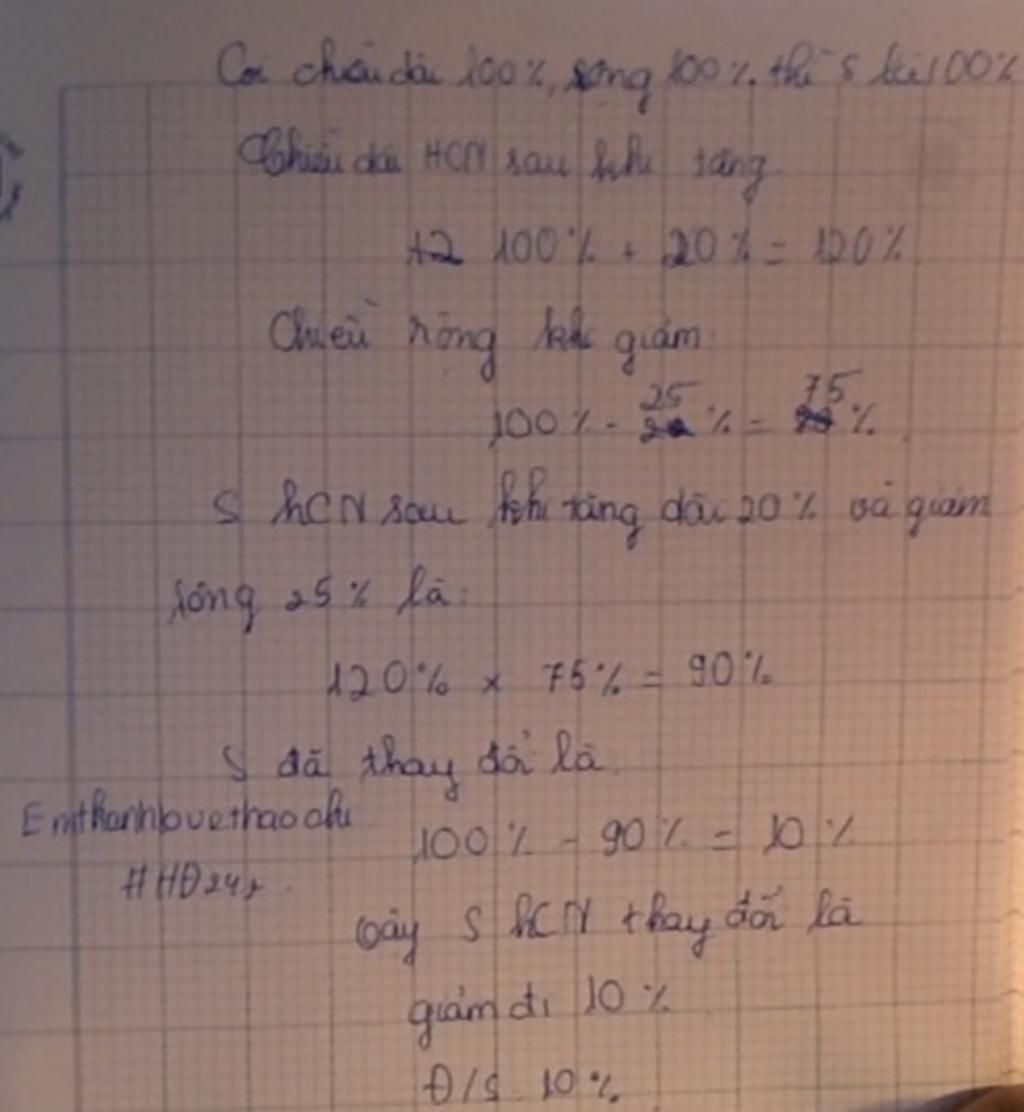 Coi chiều dài 100%, rộng 100% thì S là 100%
Chiều dài HCN sau khi tăng
100% + 20% = 120%
Chiều rộng khi giảm:
100% - 25% = 75%
S hCN sau khi tăng dài 20% và giảm
rộng 25% là:
120% × 75% = 90%
S đã thay đổi là
100% - 90% = 10%
Emthanhlovethaochi
#HĐ247
Vậy S hCN thay đổi là
giảm đi 10%
Đ/S 10%